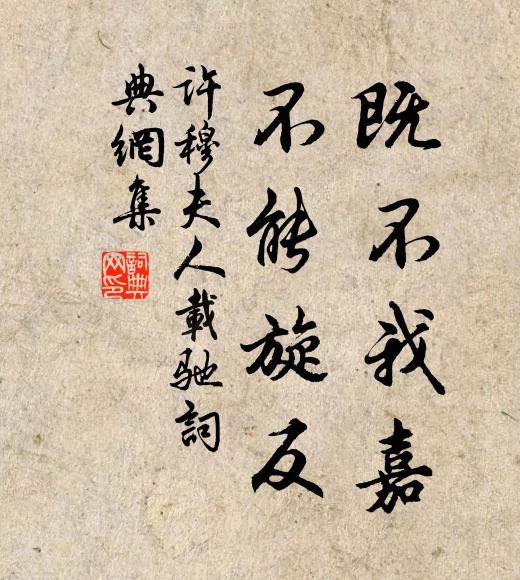 既不我嘉
不能旋反
許穆夫人載馳詞
典網集
詞典網印